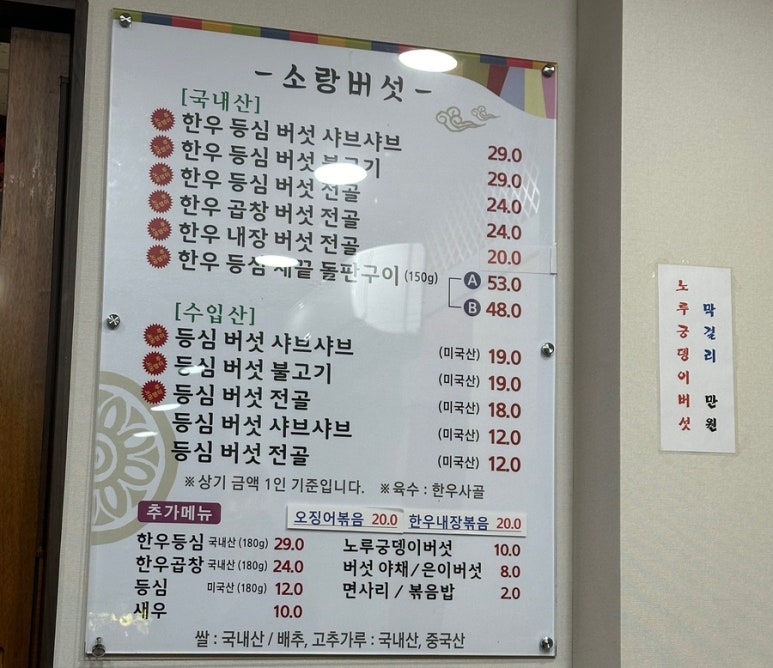 - 소랑버섯 -
[국내산]
한우 등심 버섯 샤브샤브 29.0
한우 등심 버섯 불고기 29.0
한우 등심 버섯 전골 24.0
한우 곱창 버섯 전골 24.0
한우 내장 버섯 전골 20.0
한우 등심 채끝 돌판구이 (150g) A 53.0
B 48.0
[수입산]
등심 버섯 샤브샤브 (미국산) 19.0
등심 버섯 불고기 (미국산) 19.0
등심 버섯 전골 (미국산) 18.0
등심 버섯 샤브샤브 (미국산) 12.0
등심 버섯 전골 (미국산) 12.0
※상기 금액 1인 기준입니다. ※육수 : 한우사골
추가메뉴
오징어볶음 20.0 한우내장볶음 20.0
한우등심 국내산 (180g) 29.0
한우곱창 국내산 (180g) 24.0
등심 미국산 (180g) 12.0
새우 10.0
노루궁뎅이버섯 10.0
버섯 야채/은이버섯 8.0
면사리 / 볶음밥 2.0
쌀 : 국내산 / 배추, 고추가루 : 국내산, 중국산
노루궁뎅이버섯
막걸리 만원